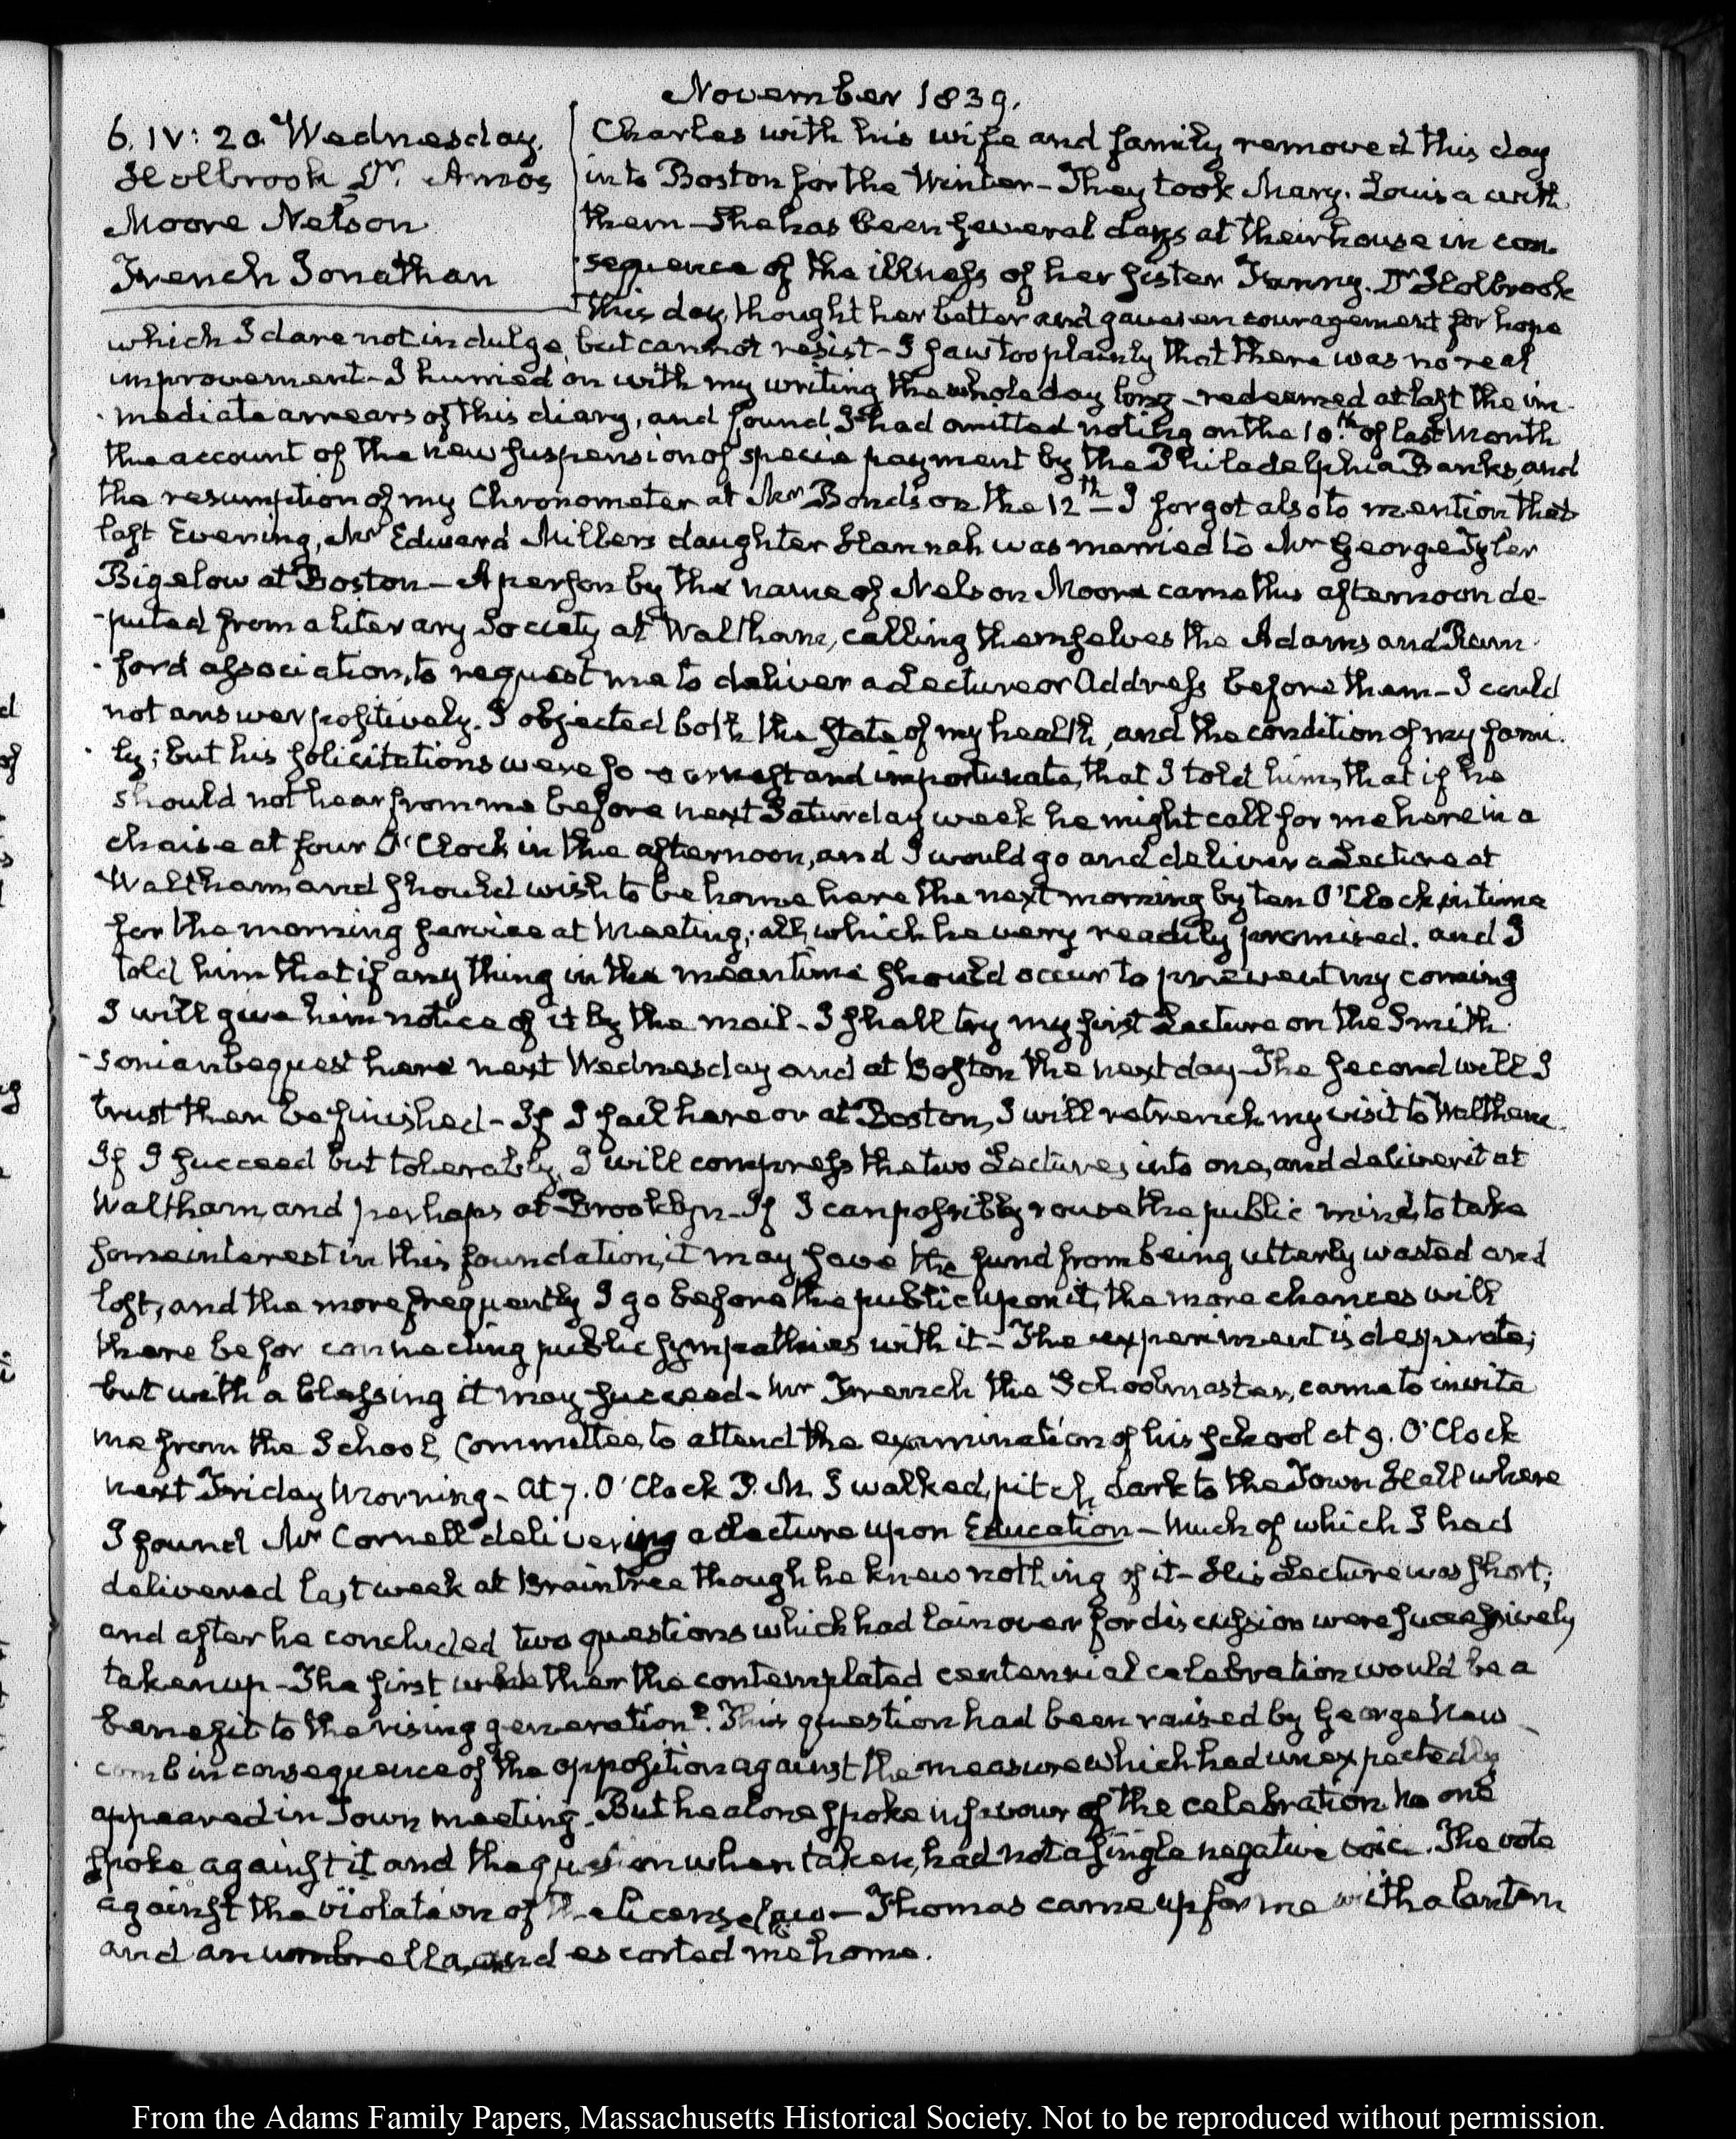 November 1839.
6. IV: 20. Wednesday.
Holbrook Dr. Amos
Moore Nelson
French Jonathan
Charles with his wife and family removed this day
into Boston for the Winter - They took Mary-Louisa with
them - She has been several days at their house in con-
sequence of the illness of her sister Fanny. Dr Holbrook
this day, thought her better and gave us encouragement for hope
which I dare not indulge, but cannot resist - I saw too plainly that there was no real
improvement - I hurried on with my writing the whole day long - redeemed at last the im-
mediate arrears of this diary, and found I had omitted noting on the 10th of last Month
the account of the new suspension of specie payment by the Philadelphia Banks, and
the resumption of my Chronometer at Mr Bond's on the 12th - I forgot also to mention that
last Evening, Mr Edward Millers daughter Hannah was married to Mr George Tyler
Bigelow at Boston - A person by the name of Nelson Moore came this afternoon de-
-puted from a literary Society at Waltham, calling themselves the Adams and Rum-
-ford association, to request me to deliver a Lecture or Address before them - I could
not answer positively. I objected both the state of my health, and the condition of my fami-
ly; but his solicitations were so earnest and importunate, that I told him, that if he
should not hear from me before next Saturday week he might call for me here in a
chaise at four O'Clock in the afternoon, and I would go and deliver a Lecture at
Waltham and should wish to be home here the next morning by ten O'Clock in time
for the morning service at Meeting; all which he very readily promised. and I
told him that if any thing in the meantime should occur to prevent my coming
I will give him notice of it by the mail - I shall try my first Lecture on the Smith-
-sonian bequest here next Wednesday and at Boston the next day - The second will I
trust then be finished - If I fail here or at Boston, I will retrench my visit to Waltham.
If I succeed but tolerably, I will compress the two Lectures into one, and deliver it at
Waltham, and perhaps at Brooklyn - If I can possibly rouse the public mind, to take
some interest in this foundation, it may save the fund from being utterly wasted and
lost, and the more frequently I go before the public upon it, the more chances will
there be for connecting public sympathies with it - The experiment is desperate;
but with a blessing it may succeed - Mr French the Schoolmaster, came to invite
me from the School Committee, to attend the examination of his school at 9. O'Clock
next Friday Morning - At 7. O'Clock P.M. I walked, pitch dark to the Town Hall where
I found Mr Cornell delivering a Lecture upon Education - Much of which I had
delivered last week at Braintree though he knew nothing of it - His Lecture was short;
and after he concluded two questions which had lain over for discussion were successively
taken up - The first whether the contemplated centennial celebration would be a
benefit to the rising generation? This question had been raised by George New-
comb in consequence of the opposition against the measure which had unexpectedly
appeared in Town meeting. But he alone spoke in favour of the celebration no one
spoke against it and the question when taken, had not a single negative voice. The vote
against the violation of the license law - Thomas came up for me with a lantern
and an umbrella, and escorted me home.
From the Adams Family Papers, Massachusetts Historical Society. Not to be reproduced without permission.